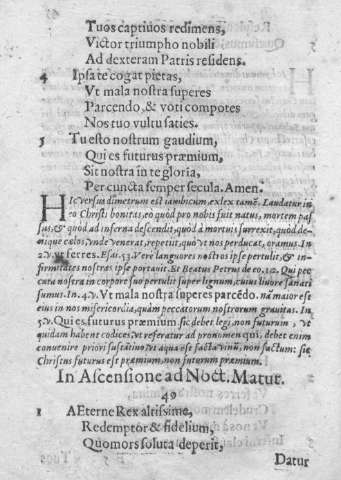 Tuos captiuos redimens,
Victor triumpho nobili
Ad dexteram Patris residens.
4 Ipsa te cogat pietas,
Vt mala nostra superes
Parcendo, & voti compotes
Nos tuo vultu saties.
5 Tu esto nostrum gaudium,
Qui es futurus præmium,
Sit nostra in te gloria,
Per cuncta semper secula. Amen.
HIc versus dimetrum est iambicum, exlex tamē. Laudatur in
eo Christi bonitas, eo quòd pro nobis fuit natus, mortem pas
sus, & quòd ad infera descendit, quòd à mortuis surrexit, quòd de-
nique celos, vnde venerat, repetijt, quo vt nos perducat, oramus. In
2. v. vt ferres. Esai. 53. Vere languores nostros ipse pertulit, & in-
firmitates nostras ipse portauit. Et Beatus Petrus de eo. 1. 2. Qui pec
cata nostra in corpore suo pertulit super lignum, cuius liuore sanati
sumus. In. 4. v. Vt mala nostra superes parcēdo. nā maior est
eius in nos misericordia, quàm peccatorum nostrorum grauitas. In.
5. v. Qui es futurus præmium sic debet legi, non futurum, vt
quidam habent codices, vt referatur ad pronomen qui, debet enim
conuenire priori substātiuo, vt aqua est factavinū, non factum: sic
Christus futurus est præmium, non futurum præmium.
In Ascensione ad Noct. Matur.
49
1 AEterne Rex altissime,
Redemptor & fidelium,
Quo mors soluta deperit,
Datur